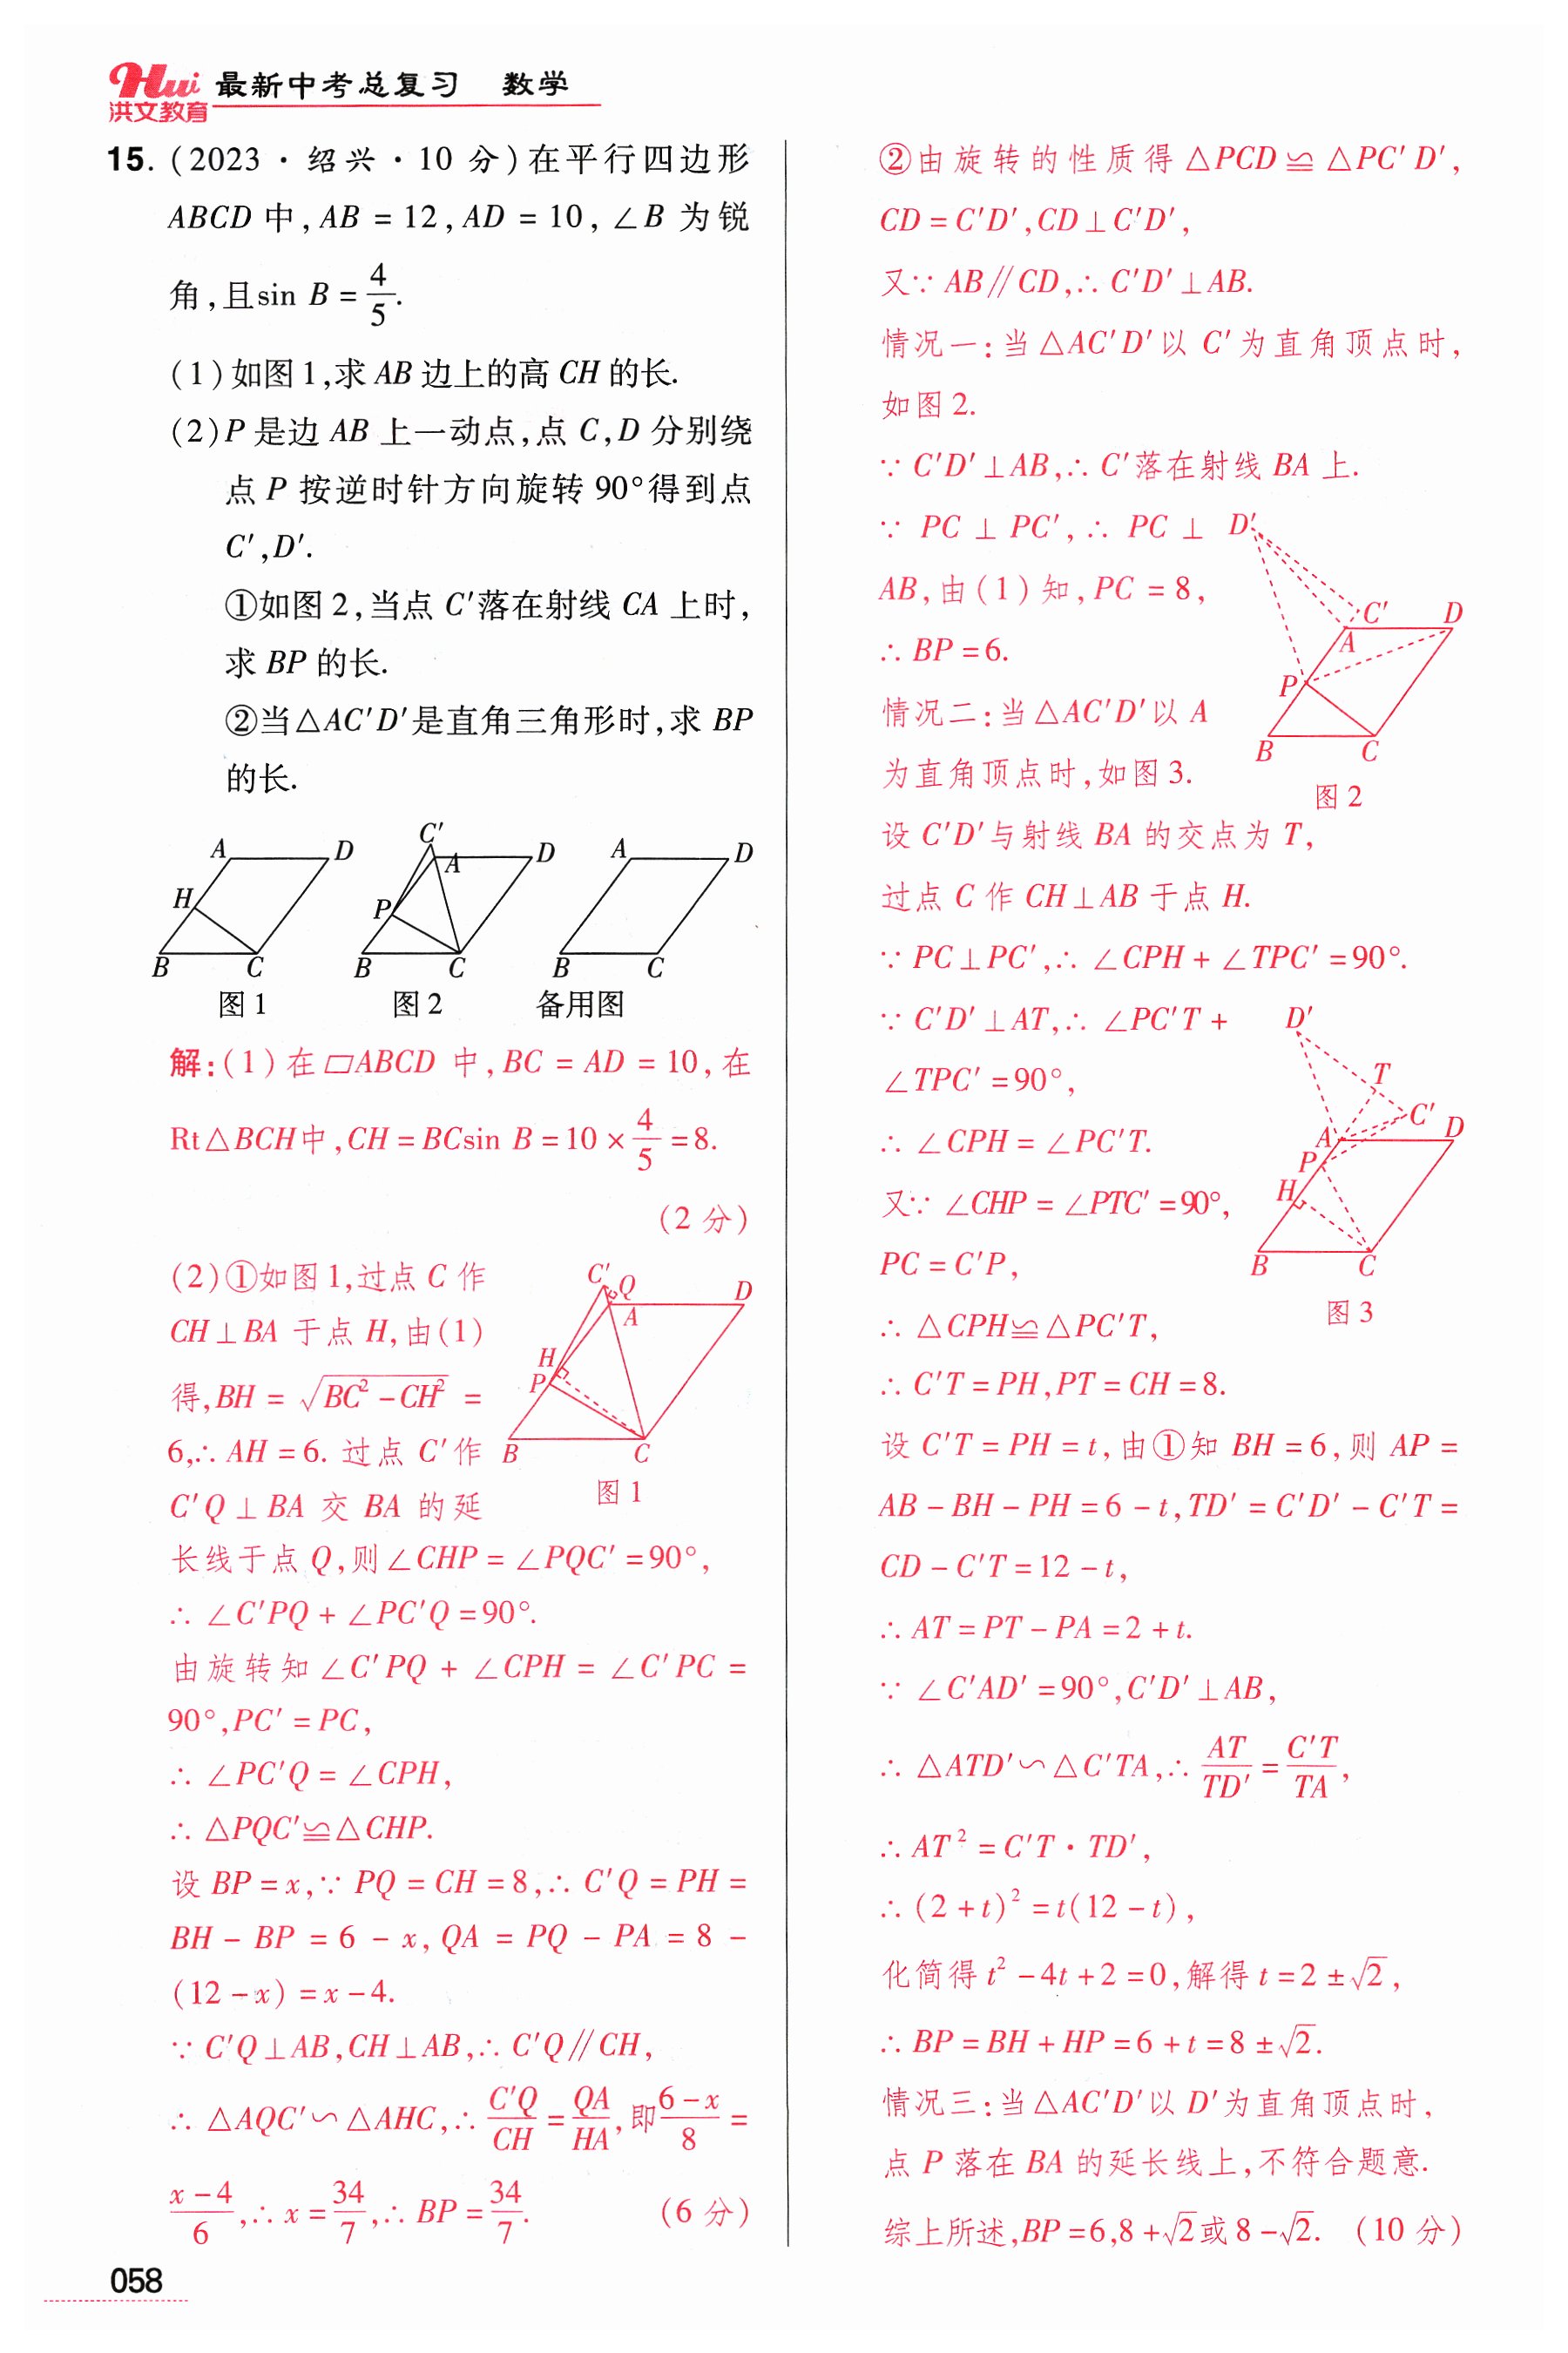 Hui 最新中考总复习 数学
洪文教育
15. (2023·绍兴·10 分)在平行四边形
ABCD 中,AB = 12,AD = 10,∠B 为锐
角,且sin B = 4/5.
(1)如图1,求 AB 边上的高 CH 的长.
(2)P 是边 AB 上一动点,点 C,D 分别绕
点 P 按逆时针方向旋转 90°得到点
C′,D′.
①如图2,当点 C′落在射线 CA 上时,
求 BP 的长.
②当△AC′D′是直角三角形时,求 BP
的长.
A D H B C
图1
C′ A D P B C
图2
A D B C
备用图
解:(1)在▱ABCD 中,BC = AD = 10,在
Rt△BCH中,CH = BCsin B = 10 × 4/5 = 8.
(2 分)
(2)①如图1,过点 C 作
CH⊥BA 于点 H,由(1)
得,BH = √(BC² - CH²) =
6,∴ AH = 6. 过点 C′作
C′Q ⊥ BA 交 BA 的延
C′ Q D A H P B C
图1
长线于点 Q,则∠CHP = ∠PQC′ = 90°,
∴ ∠C′PQ + ∠PC′Q = 90°.
由旋转知∠C′PQ + ∠CPH = ∠C′PC =
90°,PC′ = PC,
∴ ∠PC′Q = ∠CPH,
∴ △PQC′≌△CHP.
设 BP = x,∵ PQ = CH = 8,∴ C′Q = PH =
BH - BP = 6 - x,QA = PQ - PA = 8 -
(12 - x) = x - 4.
∵ C′Q⊥AB,CH⊥AB,∴ C′Q∥CH,
∴ △AQC′∽△AHC,∴ C′Q/CH = QA/HA,即(6 - x)/8 =
(x - 4)/6,∴ x = 34/7,∴ BP = 34/7. (6 分)
058
②由旋转的性质得△PCD≌△PC′D′,
CD = C′D′,CD⊥C′D′,
又∵ AB∥CD,∴ C′D′⊥AB.
情况一:当△AC′D′以 C′为直角顶点时,
如图2.
∵ C′D′⊥AB,∴ C′落在射线 BA 上.
∵ PC ⊥ PC′,∴ PC ⊥
AB,由(1)知,PC = 8,
∴ BP = 6.
D′ C′ D A P B C
图2
情况二:当△AC′D′以 A
为直角顶点时,如图3.
设 C′D′与射线 BA 的交点为 T,
过点 C 作 CH⊥AB 于点 H.
∵ PC⊥PC′,∴ ∠CPH + ∠TPC′ = 90°.
∵ C′D′⊥AT,∴ ∠PC′T +
∠TPC′ = 90°,
∴ ∠CPH = ∠PC′T.
又∵ ∠CHP = ∠PTC′ = 90°,
PC = C′P,
∴ △CPH≌△PC′T,
D′ T C′ D A P H B C
图3
∴ C′T = PH,PT = CH = 8.
设 C′T = PH = t,由①知 BH = 6,则 AP =
AB - BH - PH = 6 - t,TD′ = C′D′ - C′T =
CD - C′T = 12 - t,
∴ AT = PT - PA = 2 + t.
∵ ∠C′AD′ = 90°,C′D′⊥AB,
∴ △ATD′∽△C′TA,∴ AT/TD′ = C′T/TA,
∴ AT² = C′T · TD′,
∴ (2 + t)² = t(12 - t),
化简得 t² - 4t + 2 = 0,解得 t = 2 ± √2,
∴ BP = BH + HP = 6 + t = 8 ± √2.
情况三:当△AC′D′以 D′为直角顶点时,
点 P 落在 BA 的延长线上,不符合题意.
综上所述,BP = 6,8 + √2或 8 - √2. (10 分)